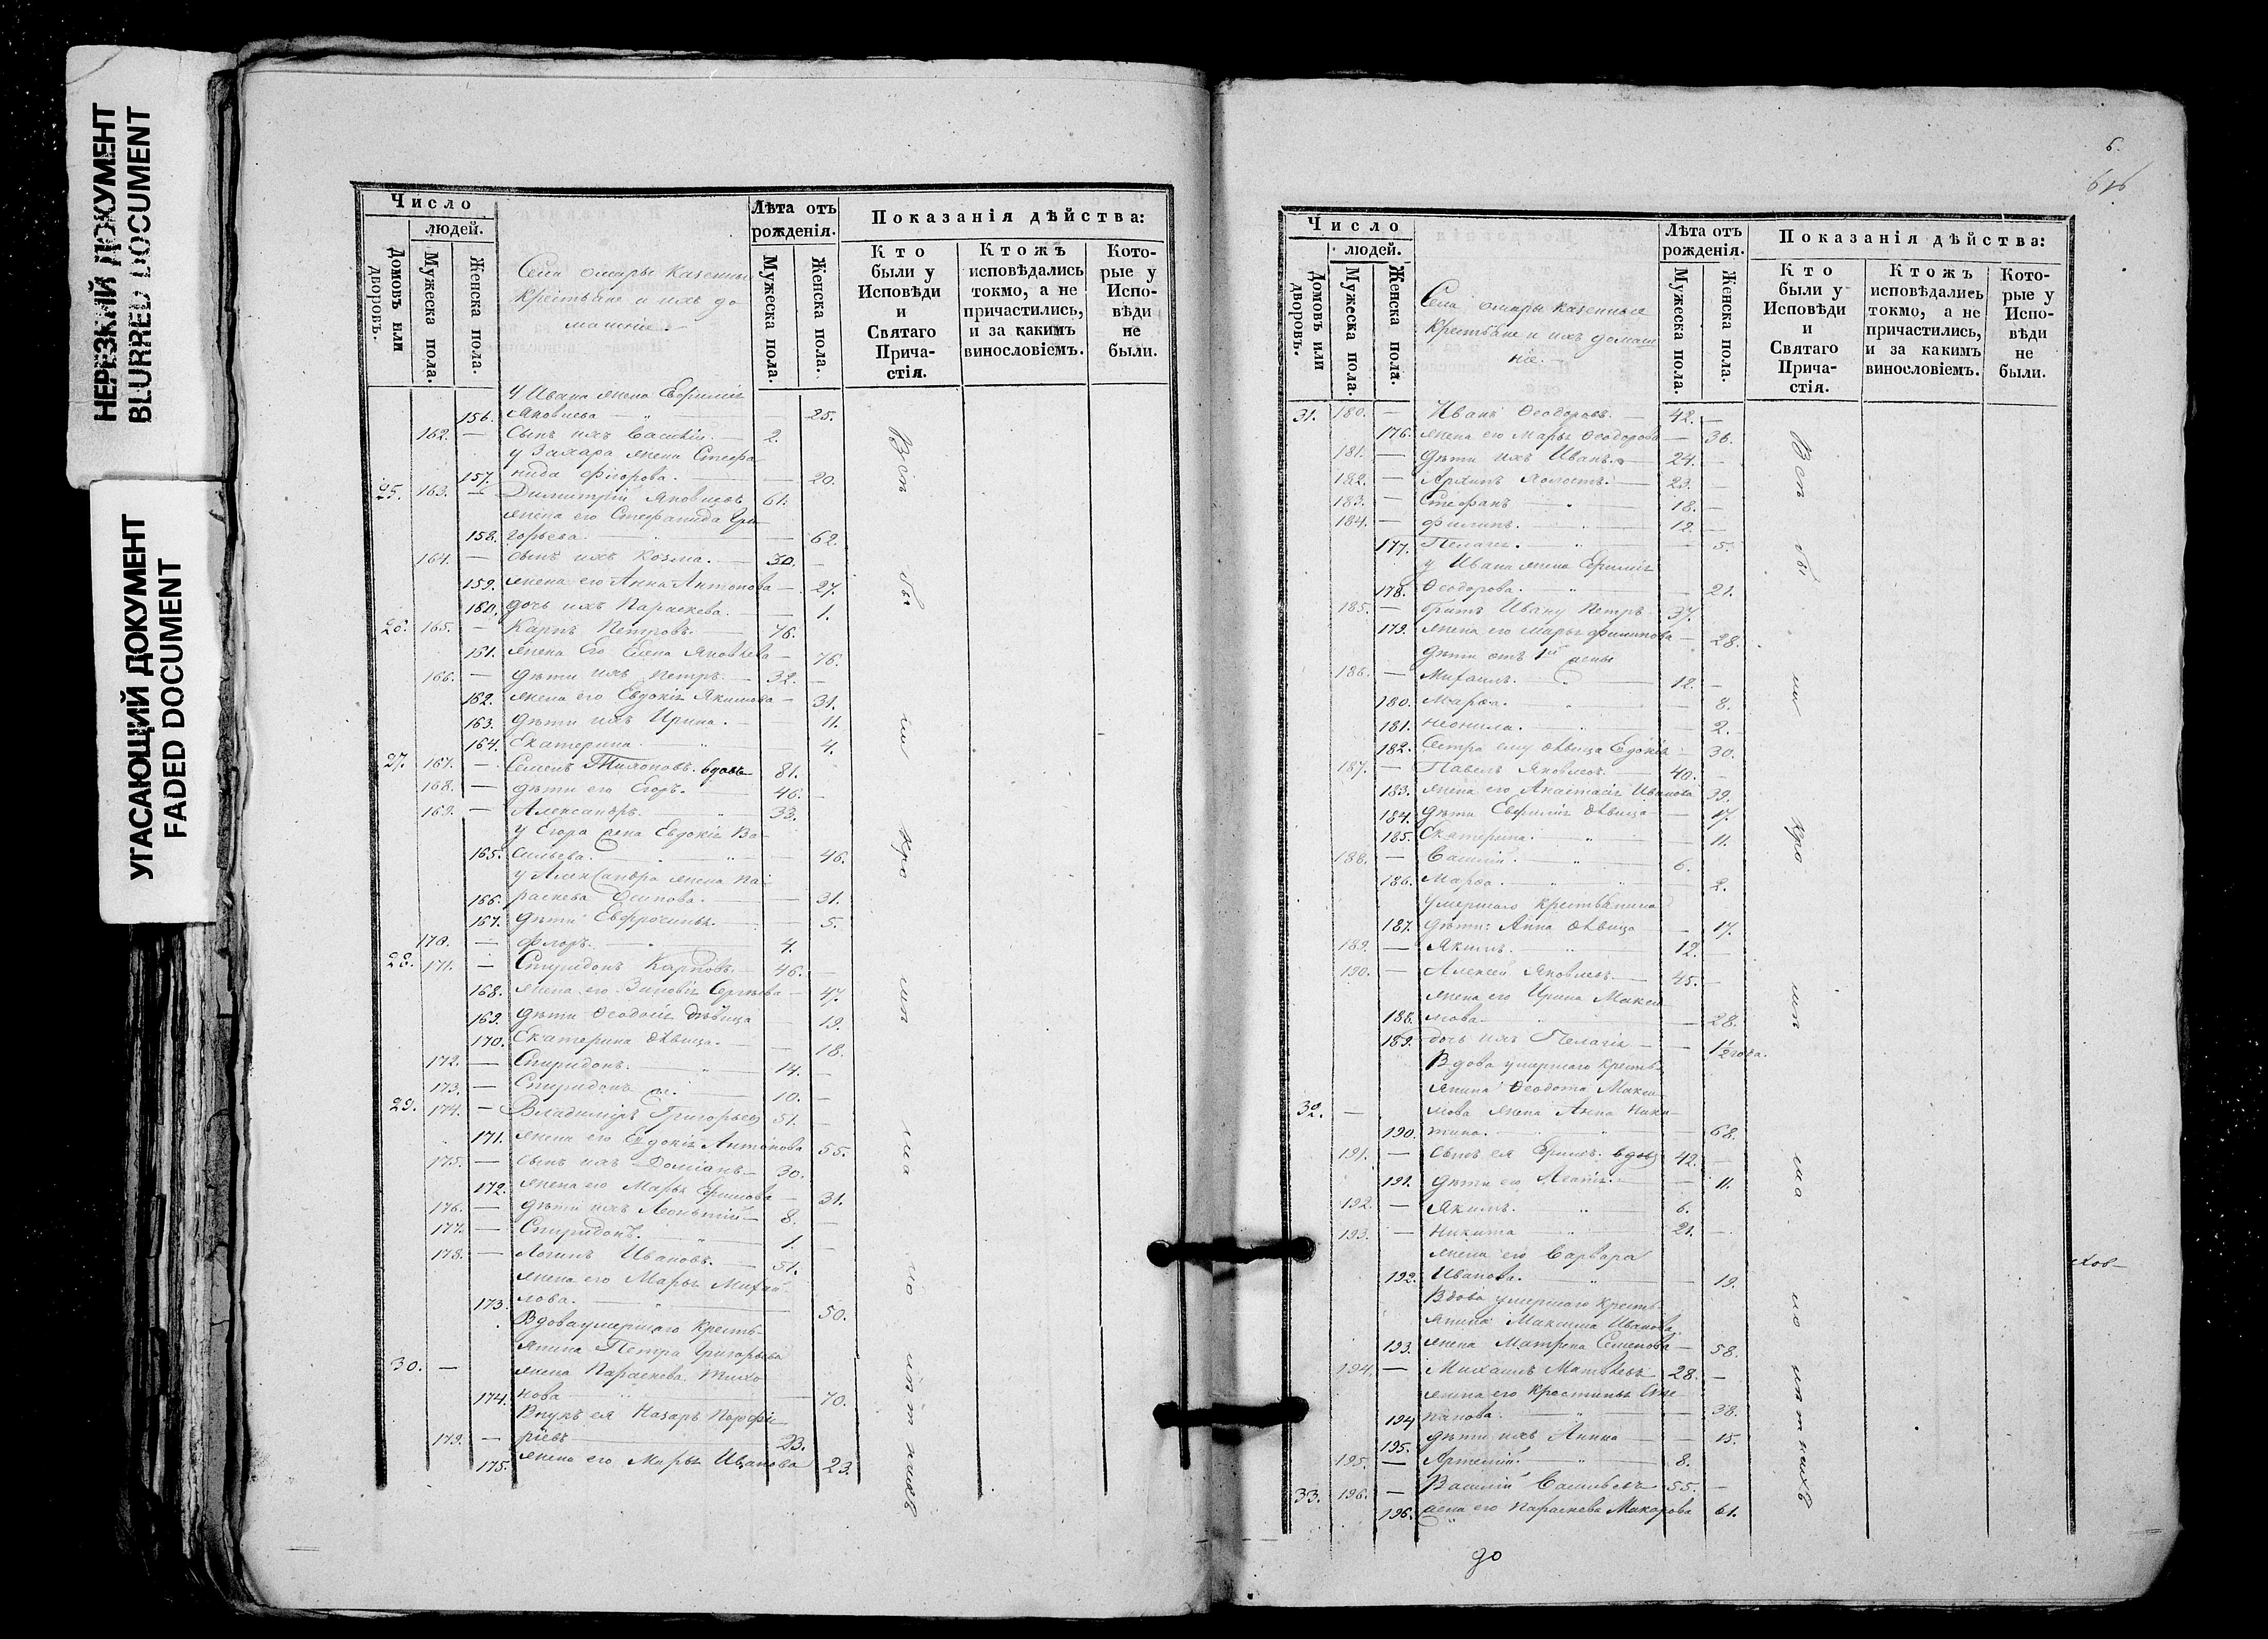 НЕРЕЗКИЙ ДОКУМЕНТ
BLURRED DOCUMENT
УГАСАЮЩИЙ ДОКУМЕНТ
FADED DOCUMENT
Число
людей.
Домовъ или дворовъ.
Мужеска пола.
Женска пола.
Села Омары казенные
крестьяне и ихъ до
машніе
Лѣта отъ рожденія.
Мужеска пола.
Женска пола.
Показанія дѣйства:
Кто были у Исповѣди и Святаго Прича-стія.
Ктожъ исповѣдались токмо, а не причастились, и за какимъ винословіемъ.
Кото-рые у Испо-вѣди не были.
У Ивана жена Евфимія
156. Яковлева — 25.
162. — Сынъ ихъ Василій. — 2.
у Захара жена Стефа
157. нида — 20.
25. 163. — Димитрій Яковлевъ 61.
жена его Стефанида Гри-
158. горьева. — 62.
164. — Сынъ ихъ Козма. — 30. —
159. жена его Анна Антонова — 27.
160. дочь ихъ Параскева. — 1.
26. 165. — Карпъ Петровъ. — 76.
161. жена Его Елена Яковлева — 76.
166. — дѣти ихъ Петръ. — 32. —
162. жена его Евдокія Якимова — 31.
163. дѣти ихъ Ирина. — 11.
164. Екатерина. — 4.
27. 167. — Семенъ Тихоновъ. вдовъ 81.
168. — дѣти его Егоръ. — 46. —
169. — Александръ. — 33.
у Егора жена Евдокія Ва-
165. сильева. — 46.
у Александра жена Па-
166. раскева Осипова. — 31.
167. дѣти Евфросинья. — 5.
170. — Флоръ. — 4.
28. 171. — Спиридонъ Карповъ. — 46. —
168. жена его Зиновія Сергѣева — 47.
169. дѣти Ѳеодосія дѣвица — 19.
170. Екатерина дѣвица. — 18.
172. — Спиридонъ. — 14. —
173. — Спиридонъ — 10. —
29. 174. — Владимиръ Григорьевъ 51. —
171. жена его Евдокія Антонова 55.
175. — Сынъ ихъ Доміанъ — 30.
172. жена его Марья Ефимова — 31.
176. — дѣти ихъ Леонтій — 8. —
177. — Спиридонъ. — 1. —
178. — Логинъ Ивановъ. — 51.
жена его Марья Михай-
173. лова. — 50.
Вдова умершаго кресть-
янина Петра Григорьева
30. — жена Параскева Тихо
174. нова — 70.
Внукъ ея Назаръ Порфи-
179. — ріевъ — 23.
175. жена его Марья Иванова 23.
Всѣ бы ли кро мѣ ма ло лѣтнихъ
6.
Число
людей.
Домовъ или дворовъ.
Мужеска пола.
Женска пола.
Села Омары казенные
крестьяне и ихъ домаш
ніе. —
Лѣта отъ рожденія.
Мужеска пола.
Женска пола.
Показанія дѣйства:
Кто были у Исповѣди и Святаго Прича-стія.
Ктожъ исповѣдались токмо, а не причастились, и за какимъ винословіемъ.
Кото-рые у Испо-вѣди не были.
31. 180. — Иванъ Ѳеодоровъ. — 42. —
176. жена его Марья Ѳеодорова — 36.
181. — дѣти ихъ Иванъ. — 24. —
182. — Архипъ холостъ. — 23. —
183. — Стефанъ — 18. —
184. — Филипъ. — 12. —
177. Пелагея. — 5.
у Ивана жена Ефимія
178. Ѳеодорова. — 21.
185. — братъ Ивану Петръ 37.
179. жена его Марья Филипова — 28.
дѣти отъ 1й жены
186. — Михаилъ. — 12. —
180. Марѳа. — 8.
181. Неонила. — 2.
182. Сестра ему дѣвица Евдокія — 30.
187. — Павелъ Яковлевъ. — 40. —
183. жена его Анастасія Иванова 39.
184. дѣти Евфимія дѣвица — 17.
185. Екатерина. — 11.
188. — Василій. — 6.
186. Марѳа. — 2.
умершаго крестьянина
187. дѣти: Анна дѣвица — 17.
189. — Якимъ. — 12. —
190. — Алексей Яковлевъ. — 45. —
жена его Ирина Макси
188. мова — 28.
189. дочь ихъ Пелагія — 1½ года.
Вдова умершаго кресть
янина Ѳеодота Макси
32. — мова жена Анна Ники-
190. тина. — 68.
191. — Сынъ ея Ефимъ. вдовъ 42. —
191. дѣти его — 11.
192. — Якимъ. — 6.
193. — Никита — 21. —
жена его Варвара
192. Иванова. — 19.
Вдова умершаго кресть
янина Максима Иванова
193. жена Матрена Семенова — 58.
194. — Михаилъ Матвѣевъ 28. —
жена его Крестинья Сте-
194 панова. — 38.
195. дѣти ихъ Анна — 15.
195. — Артемій. — 8.
33. 196. — Василій Савельевъ 55. —
196. жена его Параскева Макарова 61.
Всѣ бы ли кро мѣ ма ло лѣтнихъ